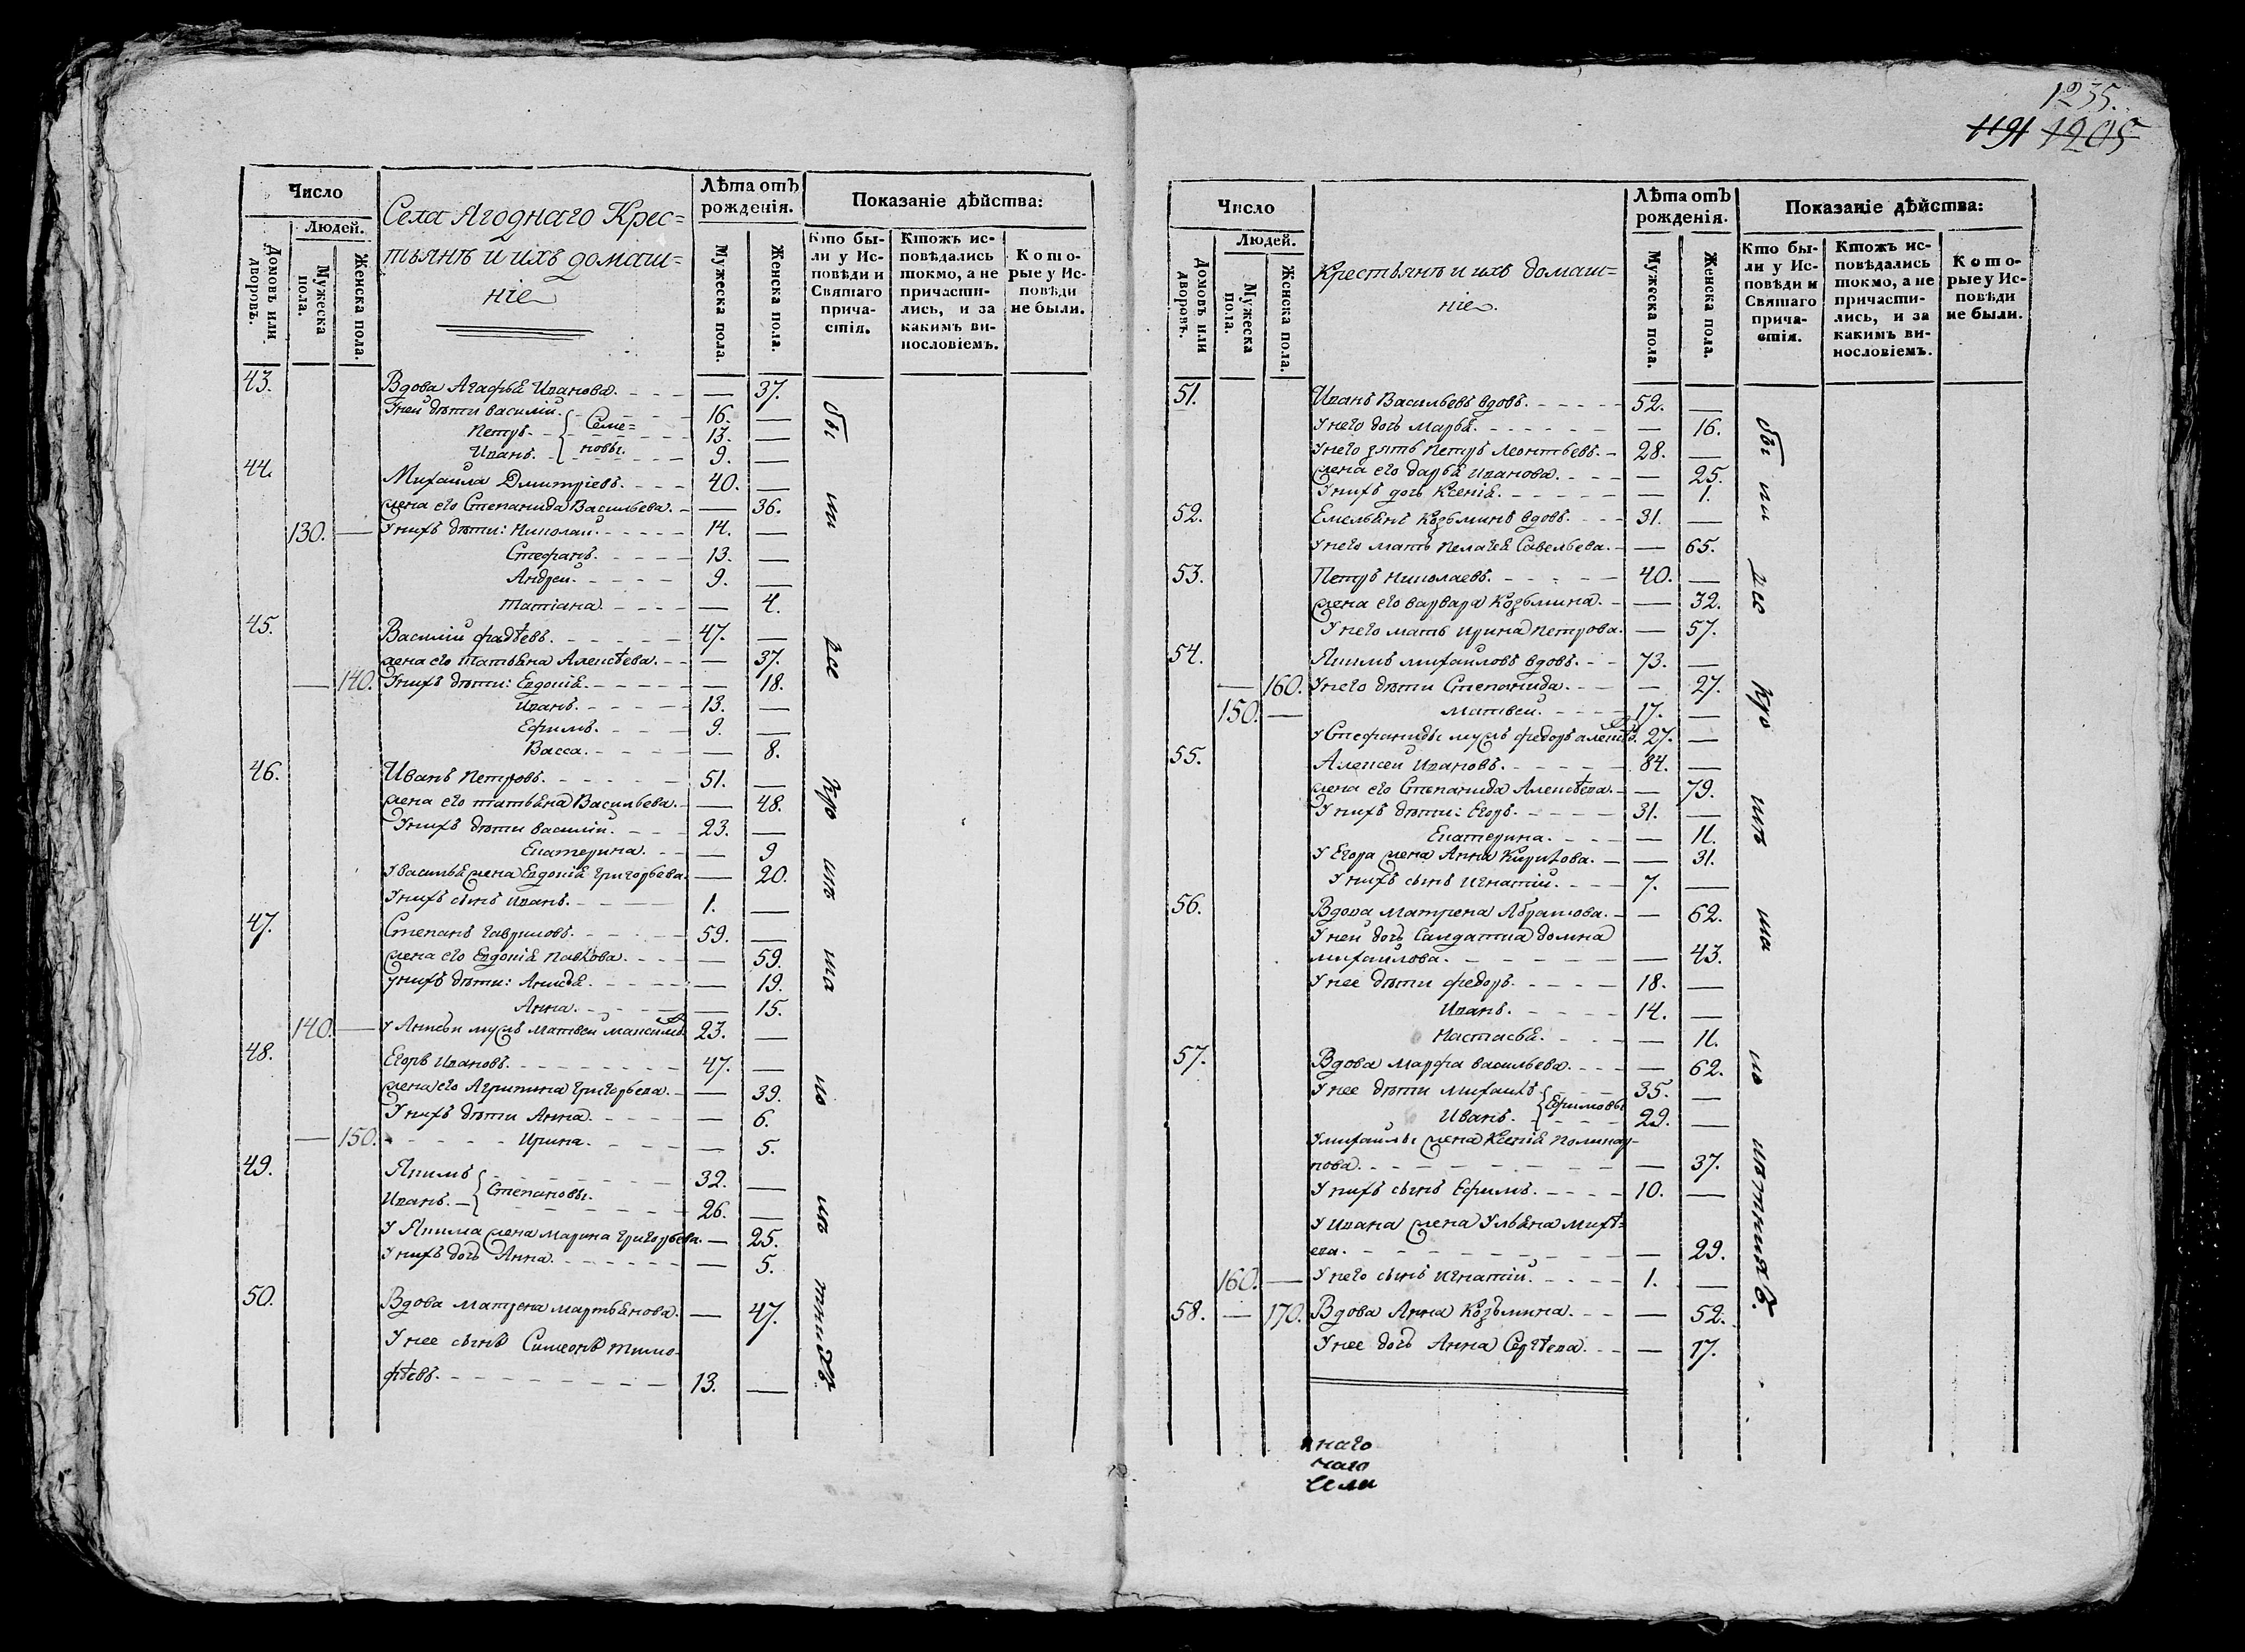 1235.
1191 1205
Число
Людей.
Домовъ или дворовъ.
Мужеска пола.
Женска пола.
Села Ягоднаго Крес=
тьянѣ и ихъ домаш=
ніе
Лѣта отъ рожденія.
Мужеска пола.
Женска пола.
Показаніе дѣйства:
Кто бы-
ли у Ис-
повѣди и
Святаго
прича-
стія.
Ктожъ ис-
повѣдались
токмо, а не
причасти-
лись, и за
какимъ ви-
нословіемъ.
Кото-
рые у Ис-
повѣди
не были.
43. Вдова Агафья Иванова. — 37.
У ней дѣти василій. 16. —
Петръ. Семе= 13. —
Иванъ. новы. 9. —
44. Михайла Дмитріевъ. 40. —
жена его Степанида Васильева. — 36.
130. — У нихъ дѣти: Николай. 14. —
Стефанъ. 13. —
Андрей. 9. —
Татіана. — 4.
45. Василій фадѣевъ. 47. —
жена его татьяна Алексѣева. — 37.
— 140. У нихъ дѣти: Евдокія. — 18.
Иванъ. 13. —
Ефимъ. 9. —
Васса. — 8.
46. Иванъ Петровъ. 51. —
жена его татьяна Васильева. — 48.
У нихъ дѣти василій. 23. —
Екатерина. — 9
У василья жена Евдокія григорьева. — 20.
У нихъ сынъ иванъ. 1. —
47. Степанъ гавриловъ. 59. —
жена его Евдокія павлова. — 59.
у нихъ дѣти: Анисья. — 19.
Анна. — 15.
140. — у Анисьи мужъ Матвей Максимовъ 23. —
48. Егоръ Ивановъ. 47. —
жена его Агрипина григорьева. — 39.
У нихъ дѣти Анна. — 6.
— 150. Ирина. — 5.
49. Якимъ 32. —
Иванъ. Степановы. 26. —
У Якима жена марина григорьева. — 25.
У нихъ дочь Анна. — 5.
50. Вдова матрена мартьянова. — 47.
У нее сынъ Симеонъ тимо-
фѣевъ. 13. —
Число
Людей.
Домовъ или дворовъ.
Мужеска пола.
Женска пола.
Крестьянѣ и ихъ домаш=
ніе.
Лѣта отъ рожденія.
Мужеска пола.
Женска пола.
Показаніе дѣйства:
Кто бы-
ли у Ис-
повѣди и
Святаго
прича-
стія.
Ктожъ ис-
повѣдались
токмо, а не
причасти-
лись, и за
какимъ ви-
нословіемъ.
Кото-
рые у Ис-
повѣди
не были.
51. Иванъ Васильевъ вдовъ. 52. —
У него дочь марья. — 16.
У него зять петръ леонтьевъ. 28. —
жена его дарья иванова. — 25.
У нихъ дочь Ксенія. — 1.
52. Емельянъ Козьминъ вдовъ. 31. —
У него мать пелагея Савельева. — 65.
53. Петръ николаевъ. 40. —
жена его варвара Козьмина. — 32.
У него мать ирина петрова. — 57.
54. Якимъ михайловъ вдовъ. 73. —
— 160. У него дѣти Степанида. — 27.
150. — Матвей. 17. —
У Стефаниды мужъ федоръ алексѣевъ. 27. —
55. Алексей Ивановъ. 84. —
жена его Степанида Алексѣева. — 79.
У нихъ дѣти: Егоръ. 31. —
Екатерина. — 11.
У Егора жена Анна Кирилова. — 31.
У нихъ сынъ игнатій. 7. —
56. Вдова матрена Абрамова. — 62.
У ней дочь Салдатка домна
михайлова. — 43.
У нее дѣти федоръ. 18. —
Иванъ. 14. —
Настасья. — 11.
57. Вдова марфа васильева. — 62.
У нее дѣти михаилъ 35. —
Иванъ. Ефимовы 29. —
У михайлы жена Ксенія поликар-
пова. — 37.
У нихъ сынъ Ефимъ. 10. —
У Ивана жена Ульяна михѣ=
ева. — 29.
160. — У него сынъ игнатій. 1. —
58. — 170. Вдова Анна Козьмина. — 52.
У нее дочь Анна Сергѣева. — 17.
наго
наго